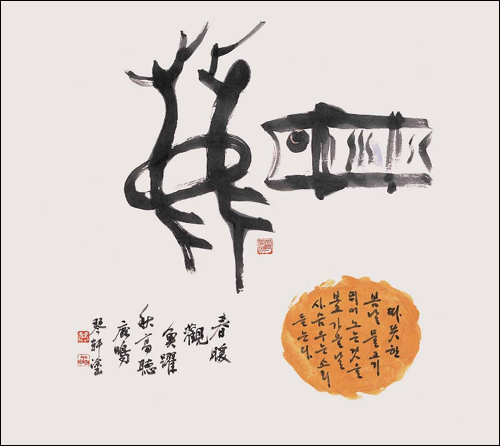 春暖
觀
魚躍
秋高聽
鹿鳴
琴軒
따뜻한
봄날 물고기
뛰어 노는 것을
보고 가을날
사슴 우는 소리
듣는다.